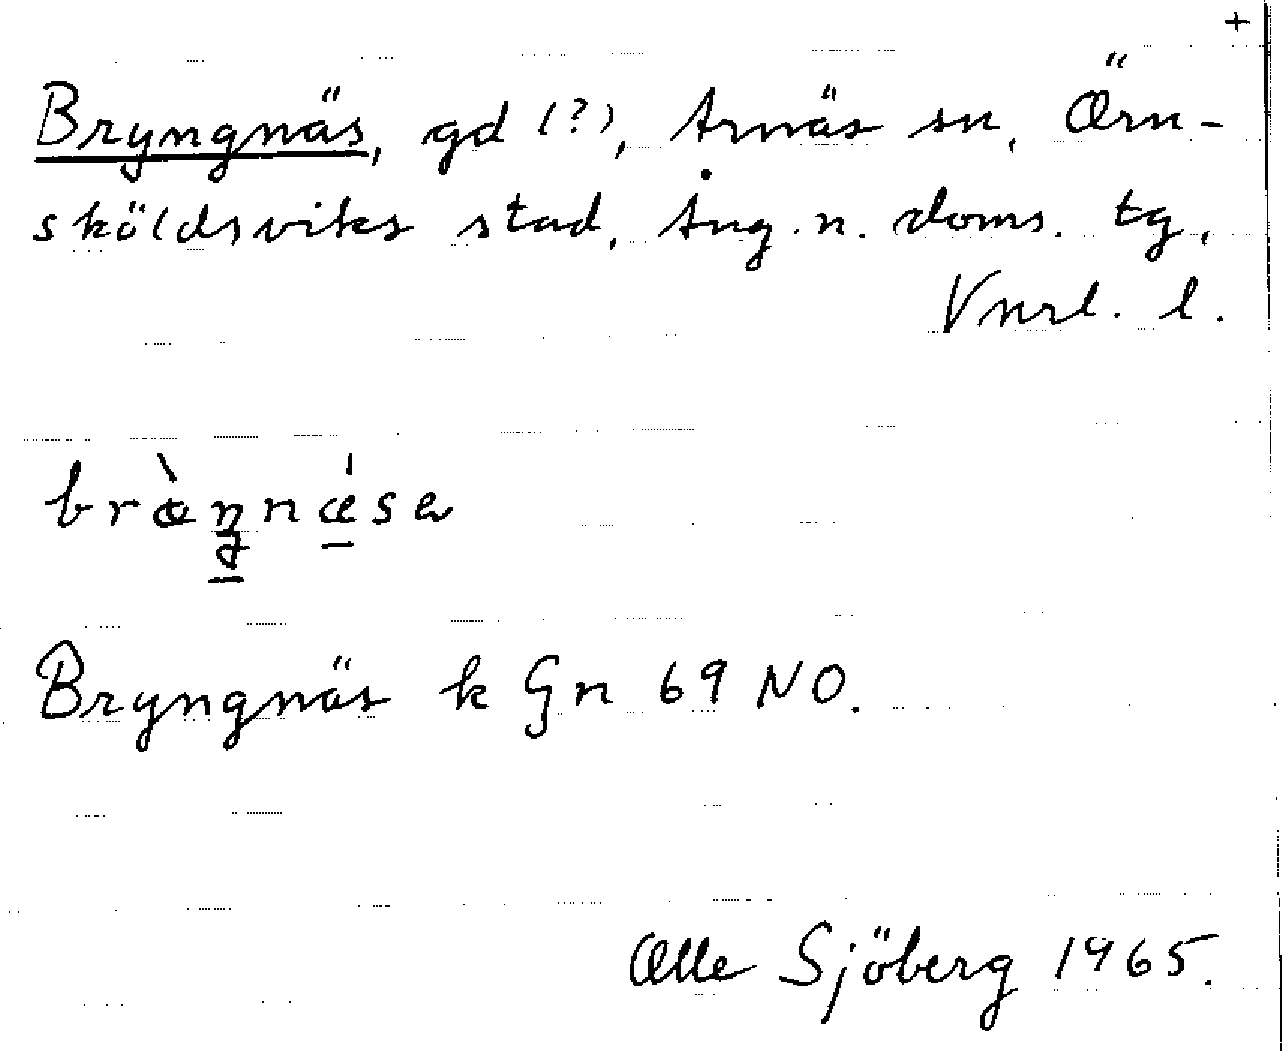 +
Bryngnäs, gd (?), Arnäs sn, Örn-
sköldsviks stad, Ång. n. doms. tg,
Vnrl. l.
Bryngnäs k Gn 69 NO.
Olle Sjöberg 1965.